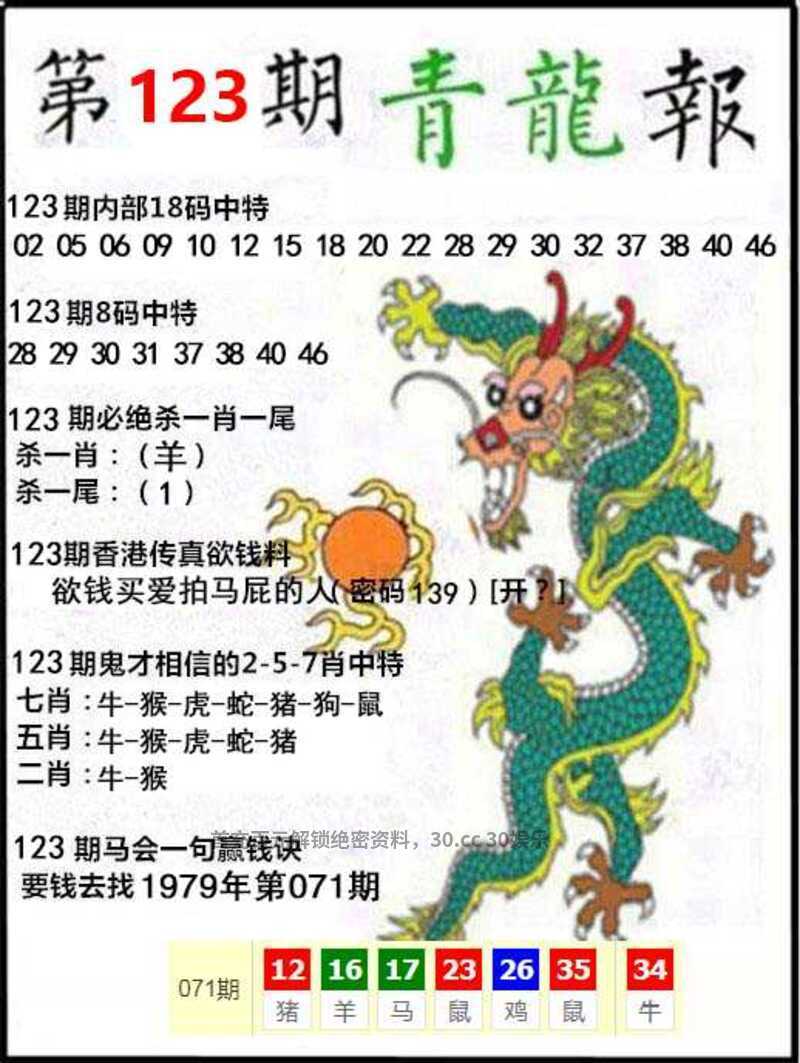 第123期青龍報
123期内部18码中特
02 05 06 09 10 12 15 18 20 22 28 29 30 32 37 38 40 46
123期8码中特
28 29 30 31 37 38 40 46
123期必绝杀一肖一尾
杀一肖：（羊）
杀一尾：（1）
123期香港传真欲钱料
欲钱买爱拍马屁的人(密码139)[开?]
123期鬼才相信的2-5-7肖中特
七肖：牛-猴-虎-蛇-猪-狗-鼠
五肖：牛-猴-虎-蛇-猪
二肖：牛-猴
解锁绝密资料，30.cc 30娱乐
123期马会一句赢钱诀
要钱去找1979年第071期
071期 12 16 17 23 26 35 34
猪 羊 马 鼠 鸡 鼠 牛